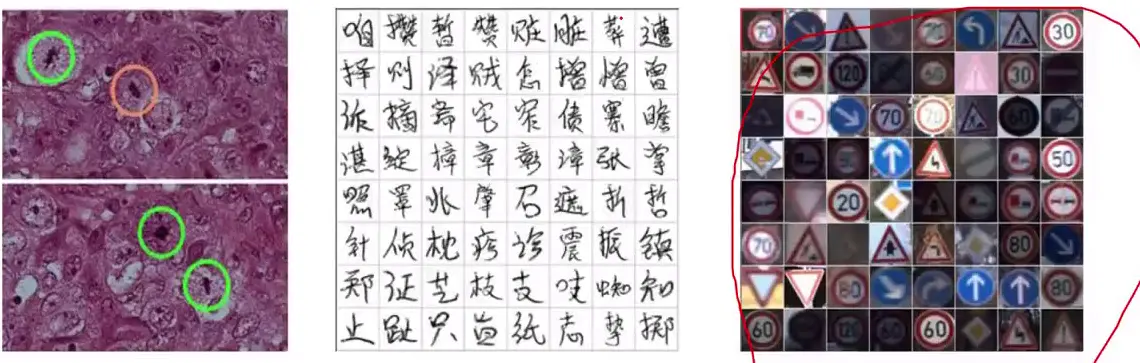 咱 攒 暂 赞 赃 脏 葬 遭
择 则 泽 贼 怎 增 憎 曾
诈 摘 斋 宅 窄 债 寨 瞻
湛 绽 樟 章 彰 漳 张 掌
照 罩 兆 肇 召 遮 折 哲
针 侦 枕 疹 诊 震 振 镇
郑 证 芝 枝 支 吱 蜘 知
止 趾 只 旨 纸 志 挚 掷
70 70 30
120 60 30
70 70 60
50
20
70 80
80 80
60 120 60 60